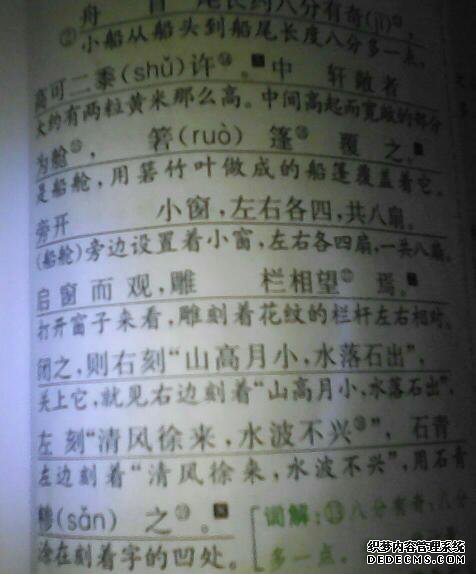 舟首尾长约八分有奇(jī)⑬,
②小船从船头到船尾长度八分多一点,
高可二黍(shǔ)许⑭。中 轩敞者
大约有两粒黄米那么高。中间高起而宽敞的部分
为舱⑮, 箬(ruò)篷⑯覆 之。
是船舱,用箬竹叶做成的船篷覆盖着它。
旁开 小窗,左右各四,共八扇。
(船舱)旁边设置着小窗,左右各四扇,一共八扇。
启窗而观,雕 栏相望⑰焉。
打开窗子来看,雕刻着花纹的栏杆左右相对。
闭之,则右刻“山高月小,水落石出”,
关上它,就见右边刻着“山高月小,水落石出”,
左刻“清风徐来,水波不兴⑱”, 石青
左边刻着“清风徐来,水波不兴”,用石青
糁(sǎn) 之⑲。 [词解:⑬八分有奇:八分
涂在刻着字的凹处。 多一点。
梦梦内容管理系统
www.ourmb.com